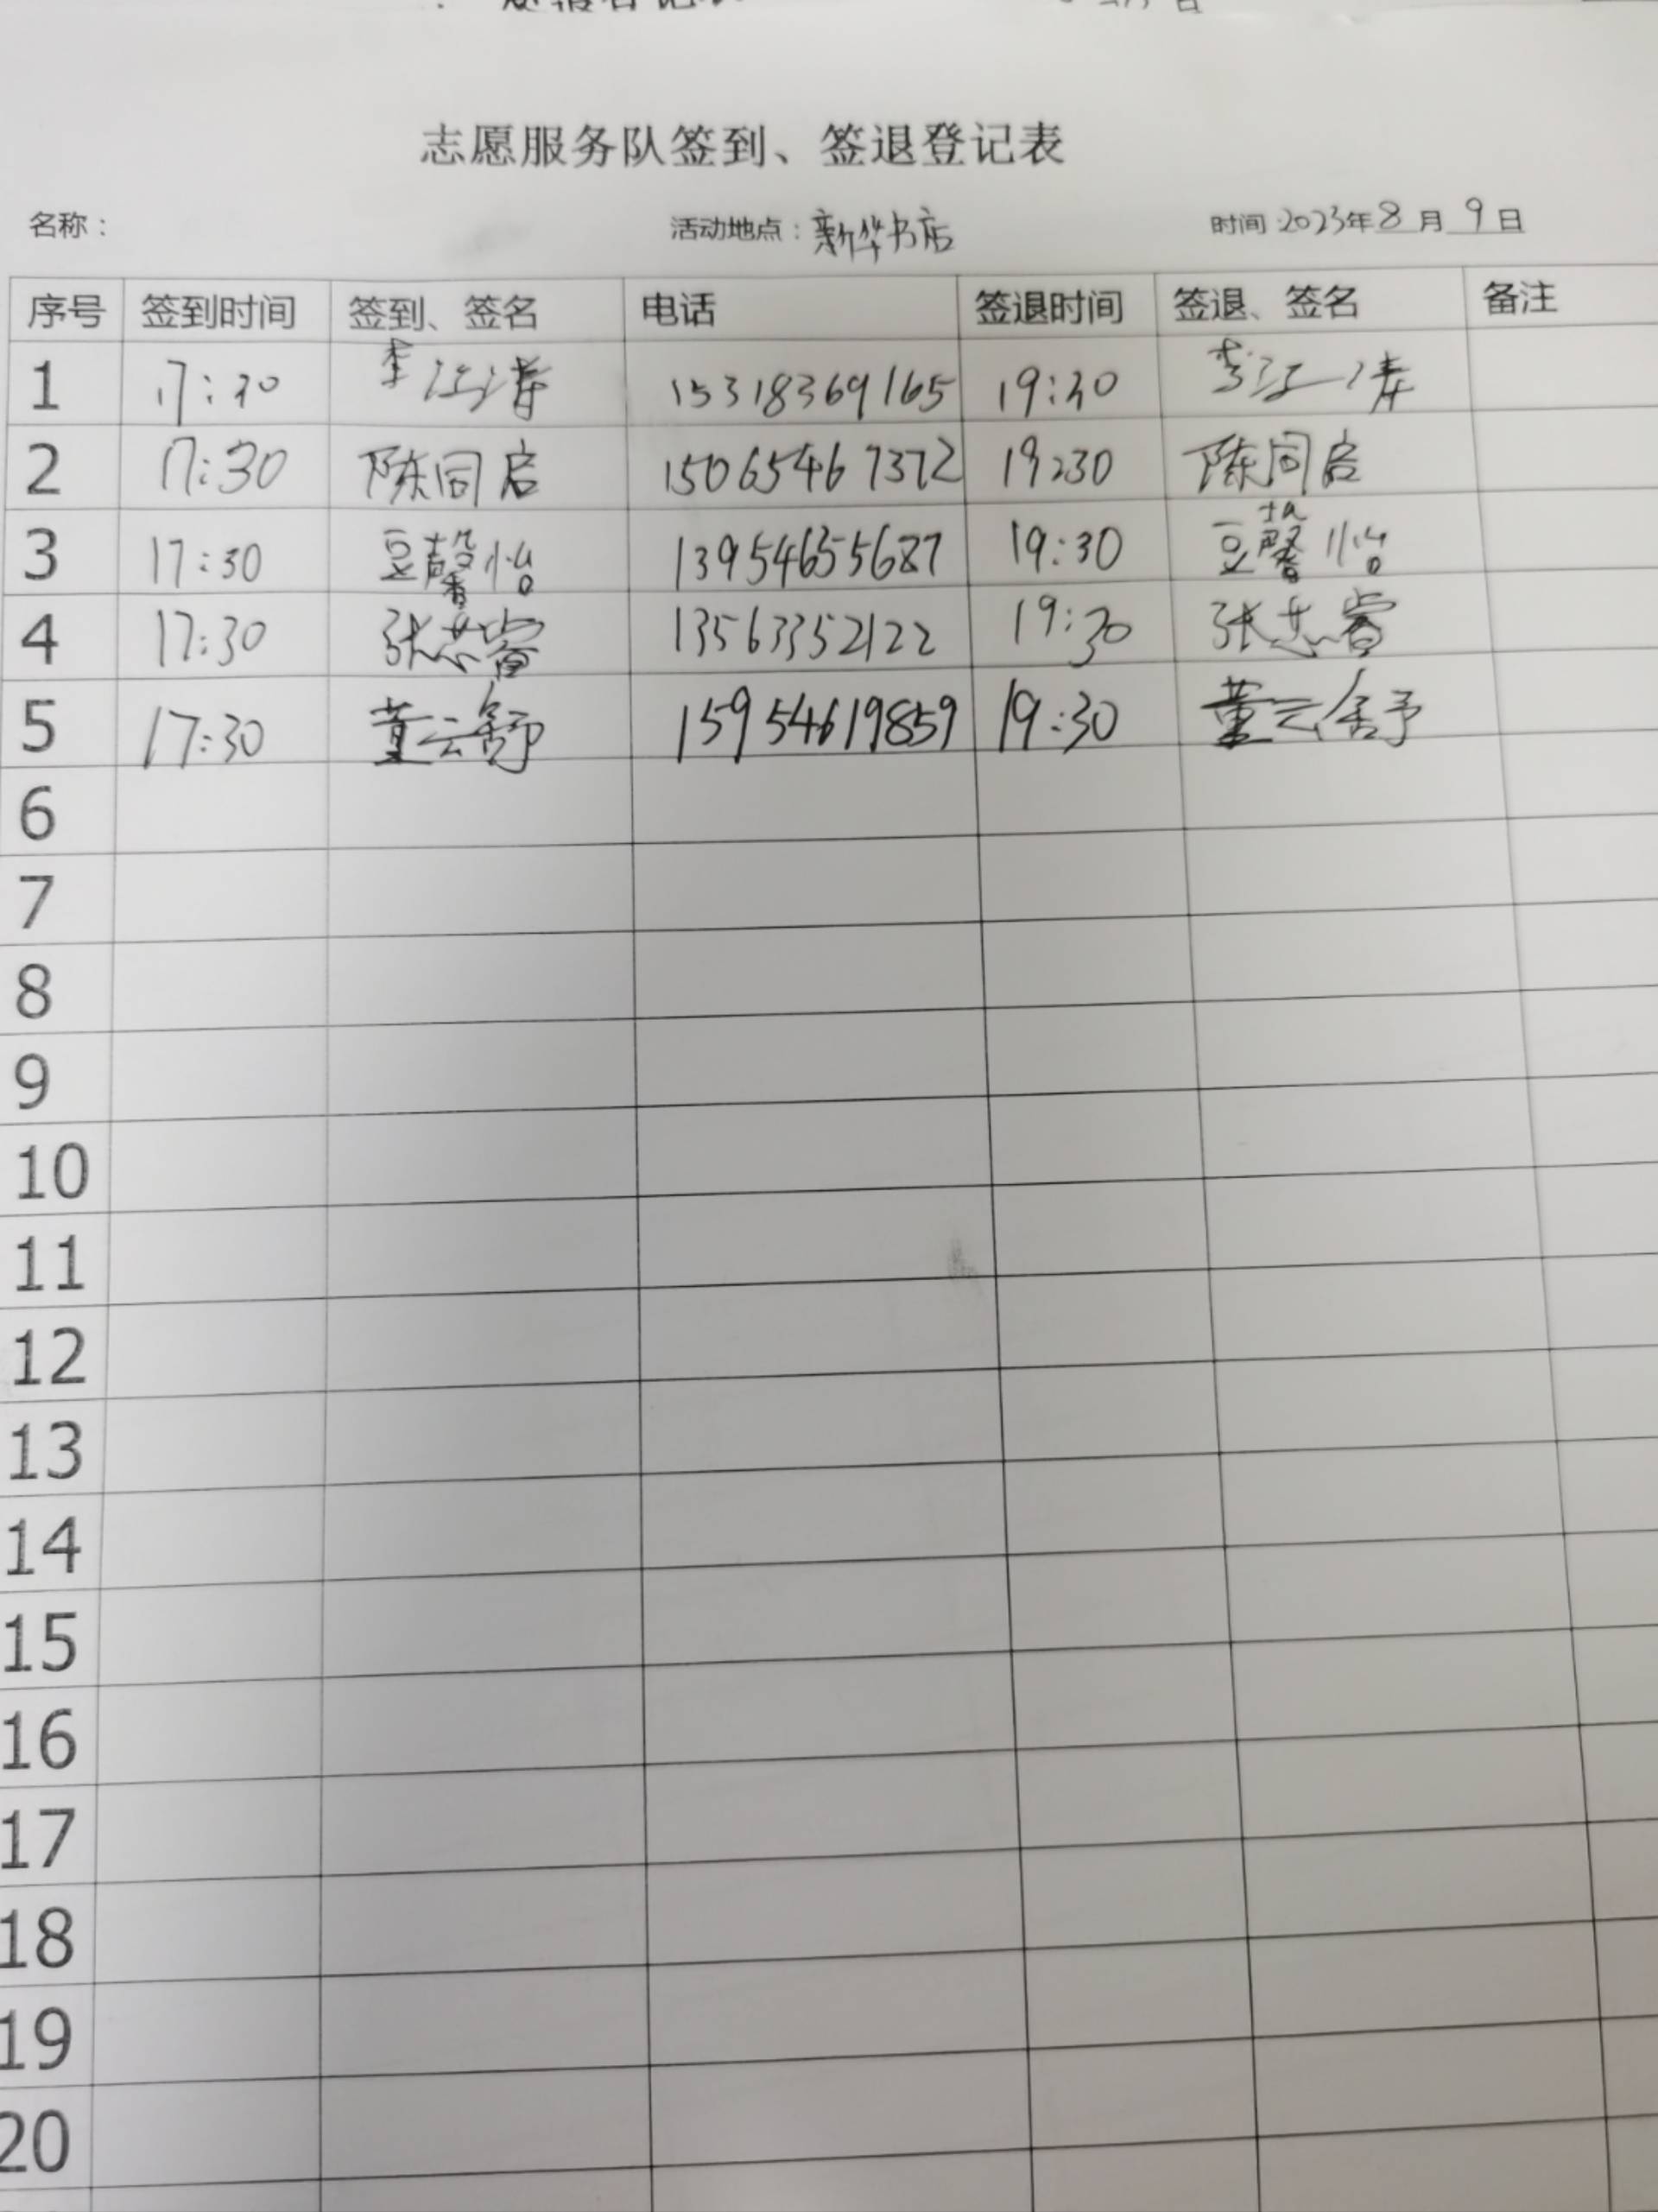 志愿服务队签到、签退登记表
名称： 活动地点：新华书店 时间:2023年8月9日
序号 签到时间 签到、签名 电话 签退时间 签退、签名 备注
1 17:30 李江涛 15318369165 19:30 李江涛
2 17:30 陈同启 15065467372 19:30 陈同启
3 17:30 豆馨怡 13954655687 19:30 豆馨怡
4 17:30 张芯睿 13563352122 19:30 张芯睿
5 17:30 董云舒 15954619859 19:30 董云舒
6
7
8
9
10
11
12
13
14
15
16
17
18
19
20